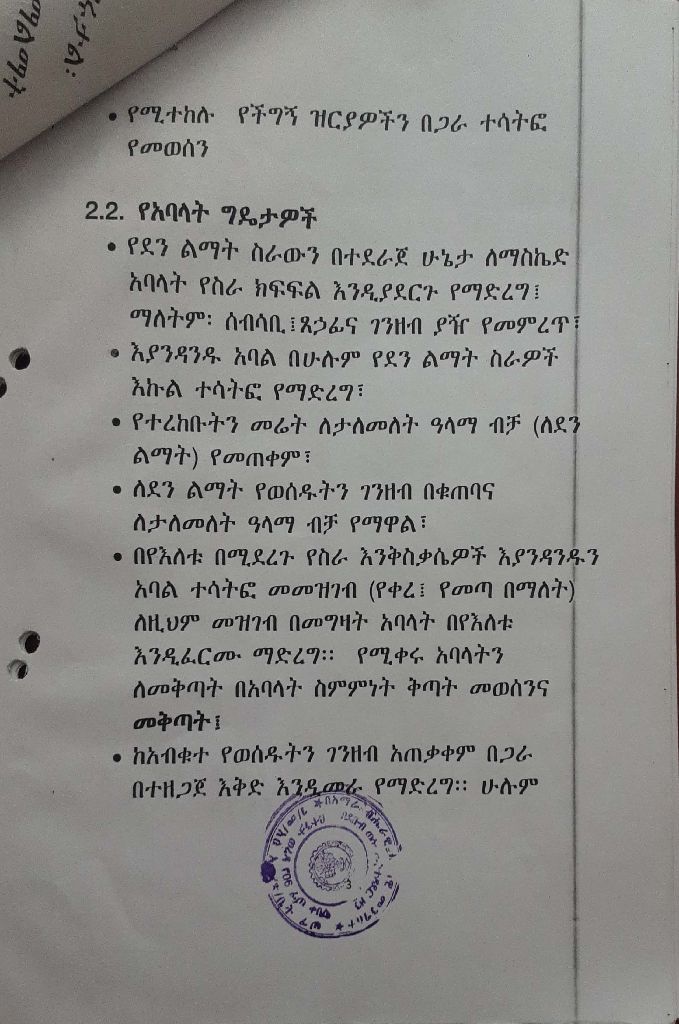 • የሚተከሉ የችግኝ ዝርያዎችን በጋራ ተሳትፎ
የመወሰን
2.2. የአባላት ግዴታዎች
• የደን ልማት ስራውን በተደራጀ ሁኔታ ለማስኬድ
አባላት የስራ ክፍፍል እንዲያደርጉ የማድረግ፤
ማለትም፡ ሰብሳቢ፤ጸኃፊና ገንዘብ ያዥ የመምረጥ፣
• እያንዳንዱ አባል በሁሉም የደን ልማት ስራዎች
እኩል ተሳትፎ የማድረግ፣
• የተረከቡትን መሬት ለታለመለት ዓላማ ብቻ (ለደን
ልማት) የመጠቀም፣
• ለደን ልማት የወሰዱትን ገንዘብ በቁጠባና
ለታለመለት ዓላማ ብቻ የማዋል፣
• በየእለቱ በሚደረጉ የስራ እንቅስቃሴዎች እያንዳንዱን
አባል ተሳትፎ መመዝገብ (የቀረ፤ የመጣ በማለት)
ለዚህም መዝገብ በመግዛት አባላት በየእለቱ
እንዲፈርሙ ማድረግ። የሚቀሩ አባላትን
ለመቅጣት በአባላት ስምምነት ቅጣት መወሰንና
መቅጣት፤
• ከአብቁተ የወሰዱትን ገንዘብ አጠቃቀም በጋራ
በተዘጋጀ እቅድ እንዲመራ የማድረግ። ሁሉም
3